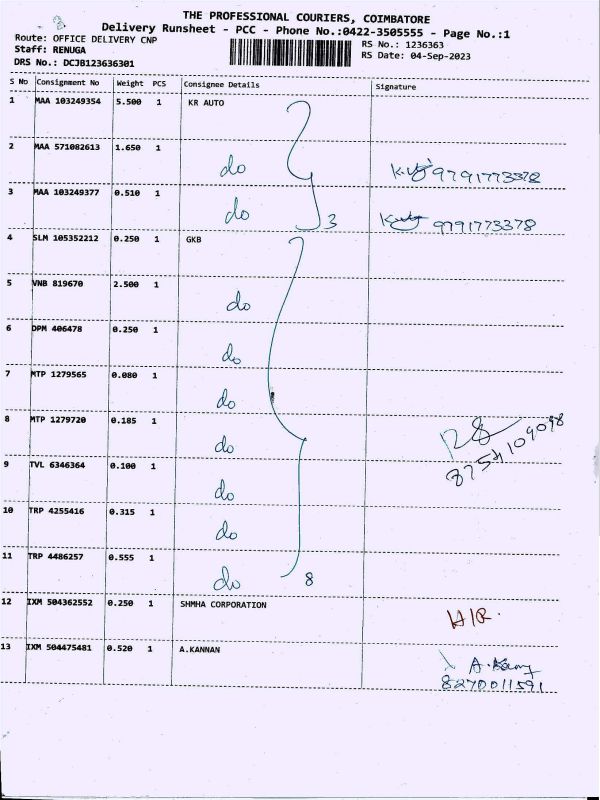 THE PROFESSIONAL COURIERS, COIMBATORE
Delivery Runsheet - PCC - Phone No.:0422-3505555 - Page No.:1
Route: OFFICE DELIVERY CNP
RS No.: 1236363
Staff: RENUGA
RS Date: 04-Sep-2023
DRS No.: DCJB123636301
S No Consignment No Weight PCS Consignee Details Signature
1 MAA 103249354 5.500 1 KR AUTO
2 MAA 571082613 1.650 1 do 9791773378
3 MAA 103249377 0.510 1 do 3 9791773378
4 SLM 105352212 0.250 1 GKB
5 VNB 819670 2.500 1 do
6 DPM 406478 0.250 1 do
7 MTP 1279565 0.080 1 do
8 MTP 1279720 0.185 1 do
8754109098
9 TVL 6346364 0.100 1 do
10 TRP 4255416 0.315 1 do
11 TRP 4486257 0.555 1 do 8
12 IXM 504362552 0.250 1 SHMHA CORPORATION H/R.
13 IXM 504475481 0.520 1 A.KANNAN
8270011591